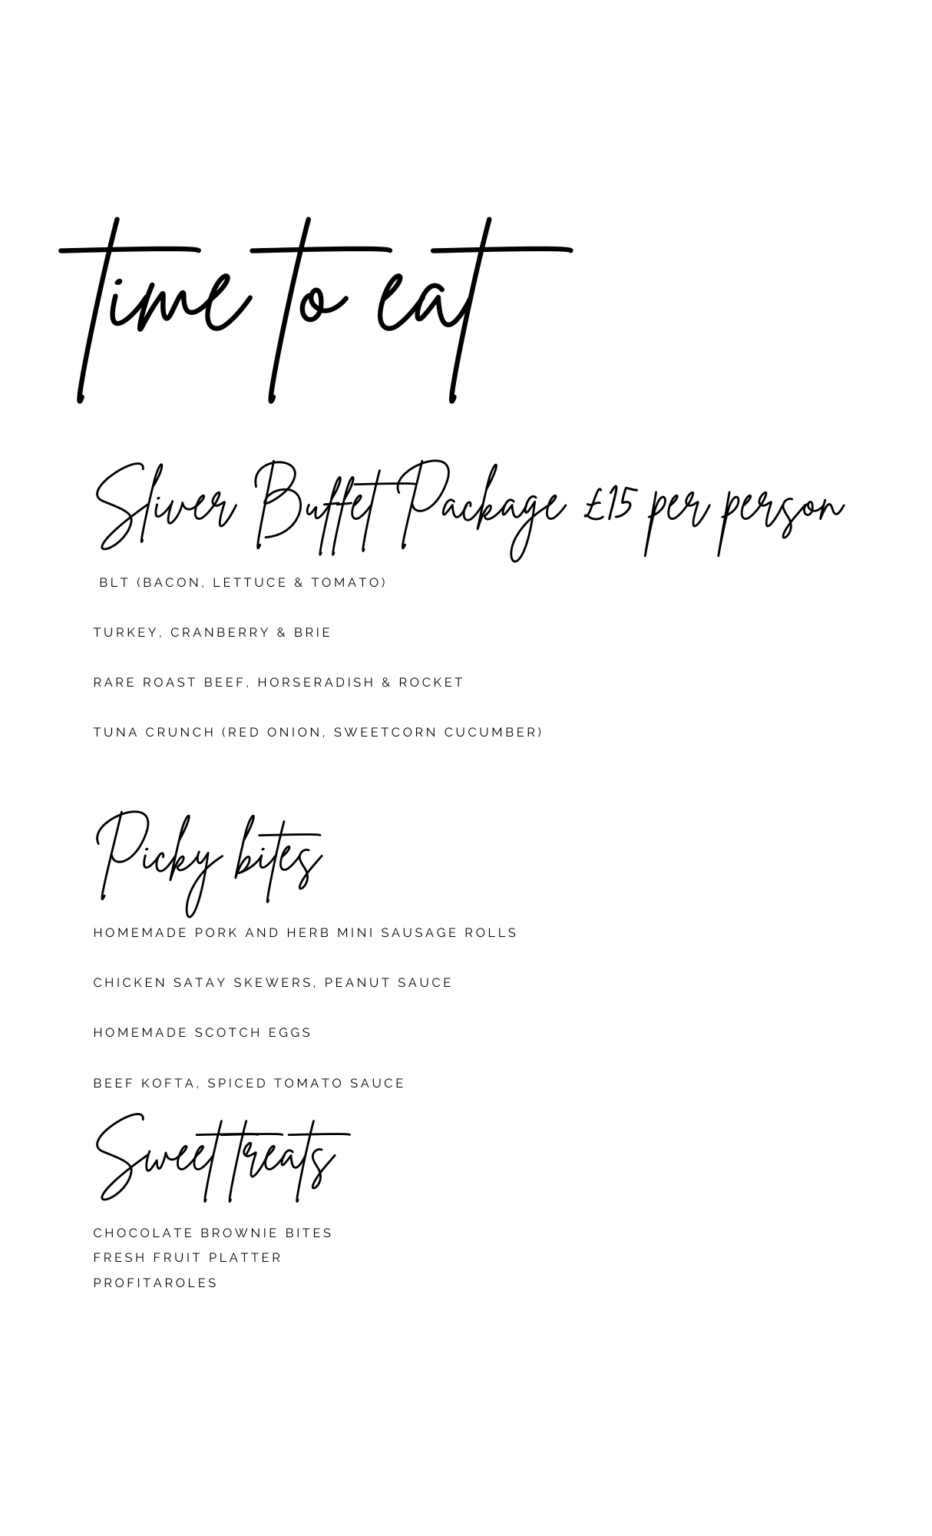 time to eat
Sliver Buffet Package £15 per person
BLT (BACON, LETTUCE & TOMATO)
TURKEY, CRANBERRY & BRIE
RARE ROAST BEEF, HORSERADISH & ROCKET
TUNA CRUNCH (RED ONION, SWEETCORN CUCUMBER)
Picky bites
HOMEMADE PORK AND HERB MINI SAUSAGE ROLLS
CHICKEN SATAY SKEWERS, PEANUT SAUCE
HOMEMADE SCOTCH EGGS
BEEF KOFTA, SPICED TOMATO SAUCE
Sweet treats
CHOCOLATE BROWNIE BITES
FRESH FRUIT PLATTER
PROFITAROLES